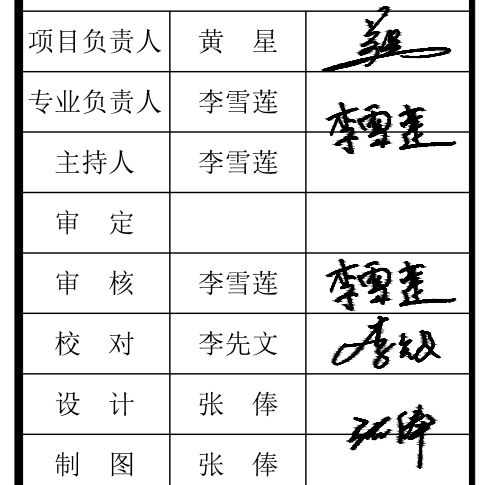 项目负责人 黄 星
专业负责人 李雪莲
李雪莲
主持人 李雪莲
审 定
审 核 李雪莲 李雪莲
校 对 李先文 李先文
设 计 张 俸
张俸
制 图 张 俸